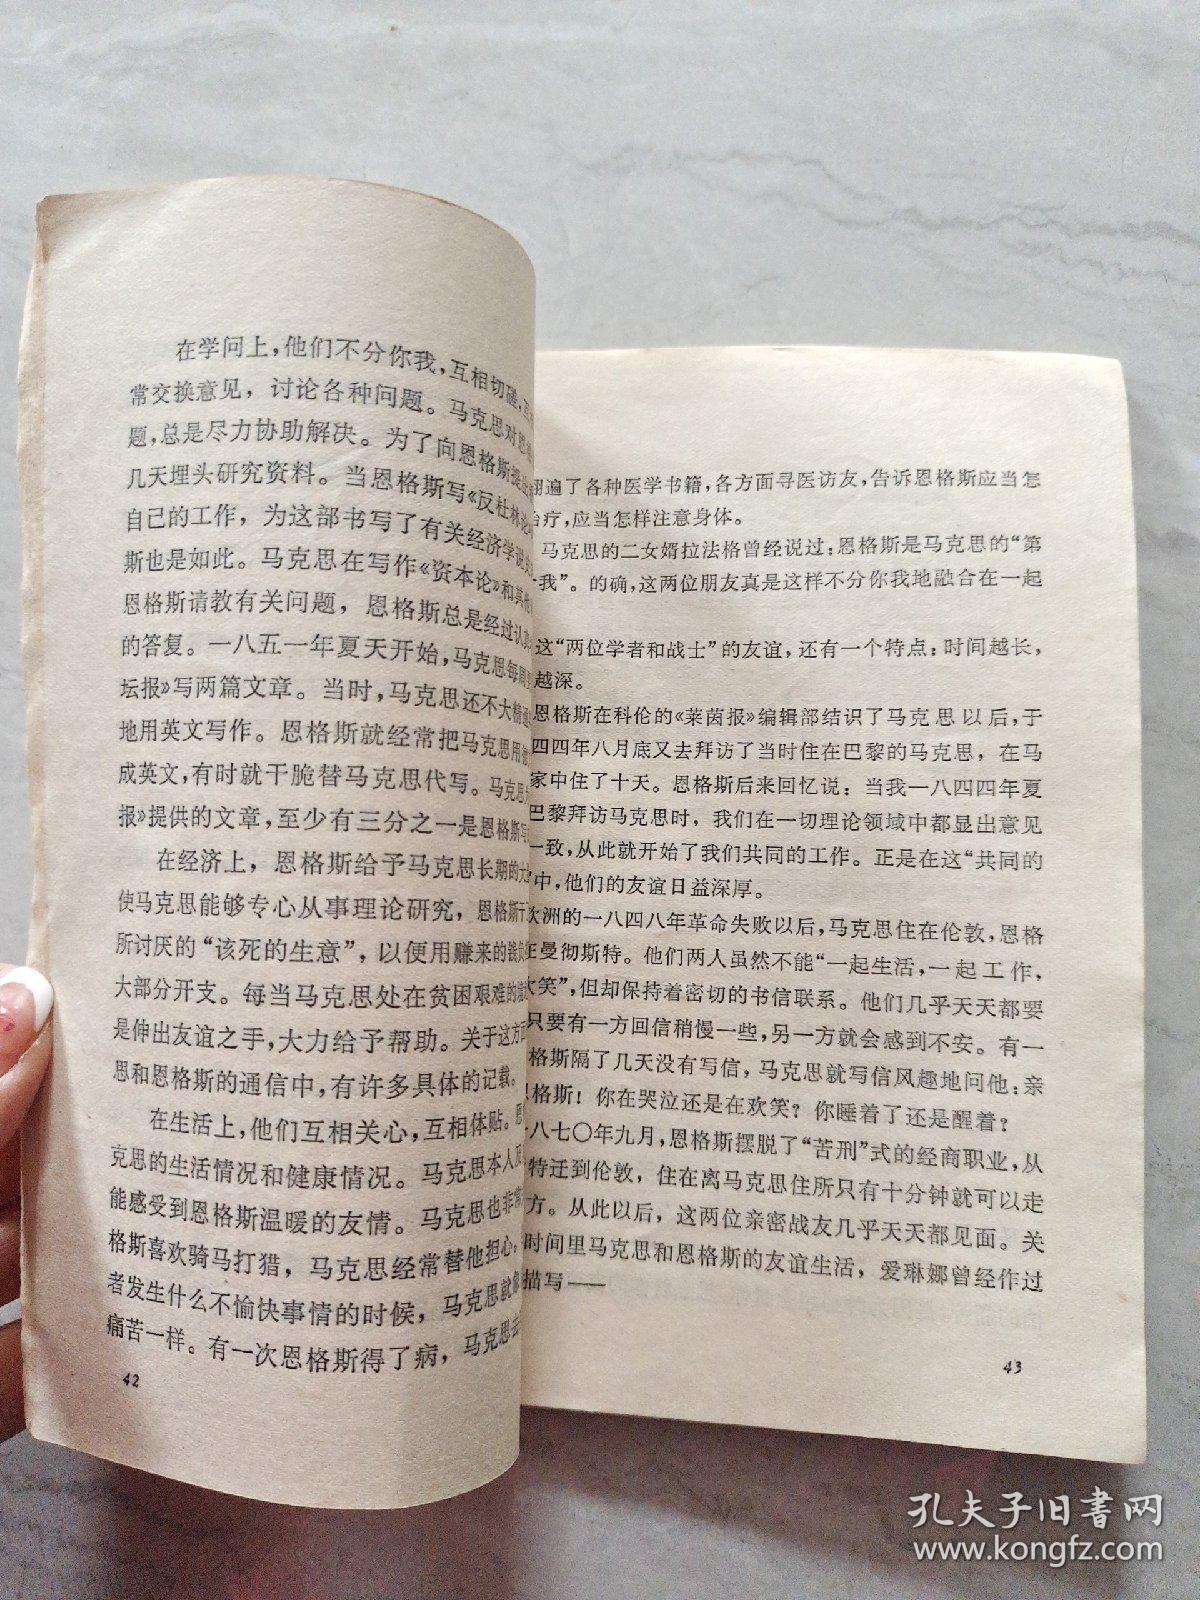 在学问上，他们不分你我，互相切磋，互
常交换意见，讨论各种问题。马克思对恩
题，总是尽力协助解决。为了向恩格斯提
几天埋头研究资料。当恩格斯写《反杜林论
自己的工作，为这部书写了有关经济学说
斯也是如此。马克思在写作《资本论》和其他
恩格斯请教有关问题，恩格斯总是经过认真
的答复。一八五一年夏天开始，马克思每周
坛报》写两篇文章。当时，马克思还不大精通
地用英文写作。恩格斯就经常把马克思用
成英文，有时就干脆替马克思代写。马克思
报》提供的文章，至少有三分之一是恩格斯写
在经济上，恩格斯给予马克思长期的大
使马克思能够专心从事理论研究，恩格斯
所讨厌的“该死的生意”，以便用赚来的钱
大部分开支。每当马克思处在贫困艰难的
是伸出友谊之手，大力给予帮助。关于这方面
思和恩格斯的通信中，有许多具体的记载。
在生活上，他们互相关心，互相体贴。恩
克思的生活情况和健康情况。马克思本人
能感受到恩格斯温暖的友情。马克思也非常
格斯喜欢骑马打猎，马克思经常替他担心；
者发生什么不愉快事情的时候，马克思就
痛苦一样。有一次恩格斯得了病，马克思
42
翻遍了各种医学书籍，各方面寻医访友，告诉恩格斯应当怎
治疗，应当怎样注意身体。
马克思的二女婿拉法格曾经说过：恩格斯是马克思的“第
一我”。的确，这两位朋友真是这样不分你我地融合在一起
这“两位学者和战士”的友谊，还有一个特点：时间越长，
越深。
恩格斯在科伦的《莱茵报》编辑部结识了马克思以后，于
四四年八月底又去拜访了当时住在巴黎的马克思，在马
家中住了十天。恩格斯后来回忆说：当我一八四四年夏
巴黎拜访马克思时，我们在一切理论领域中都显出意见
一致，从此就开始了我们共同的工作。正是在这“共同的
中，他们的友谊日益深厚。
欧洲的一八四八年革命失败以后，马克思住在伦敦，恩格
在曼彻斯特。他们两人虽然不能“一起生活，一起工作，
欢笑”，但却保持着密切的书信联系。他们几乎天天都要
只要有一方回信稍慢一些，另一方就会感到不安。有一
格斯隔了几天没有写信，马克思就写信风趣地问他：亲
恩格斯！你在哭泣还是在欢笑？你睡着了还是醒着？
八七〇年九月，恩格斯摆脱了“苦刑”式的经商职业，从
特迁到伦敦，住在离马克思住所只有十分钟就可以走
方。从此以后，这两位亲密战友几乎天天都见面。关
时间里马克思和恩格斯的友谊生活，爱琳娜曾经作过
描写——
43
孔夫子旧书网
www.kongfz.com